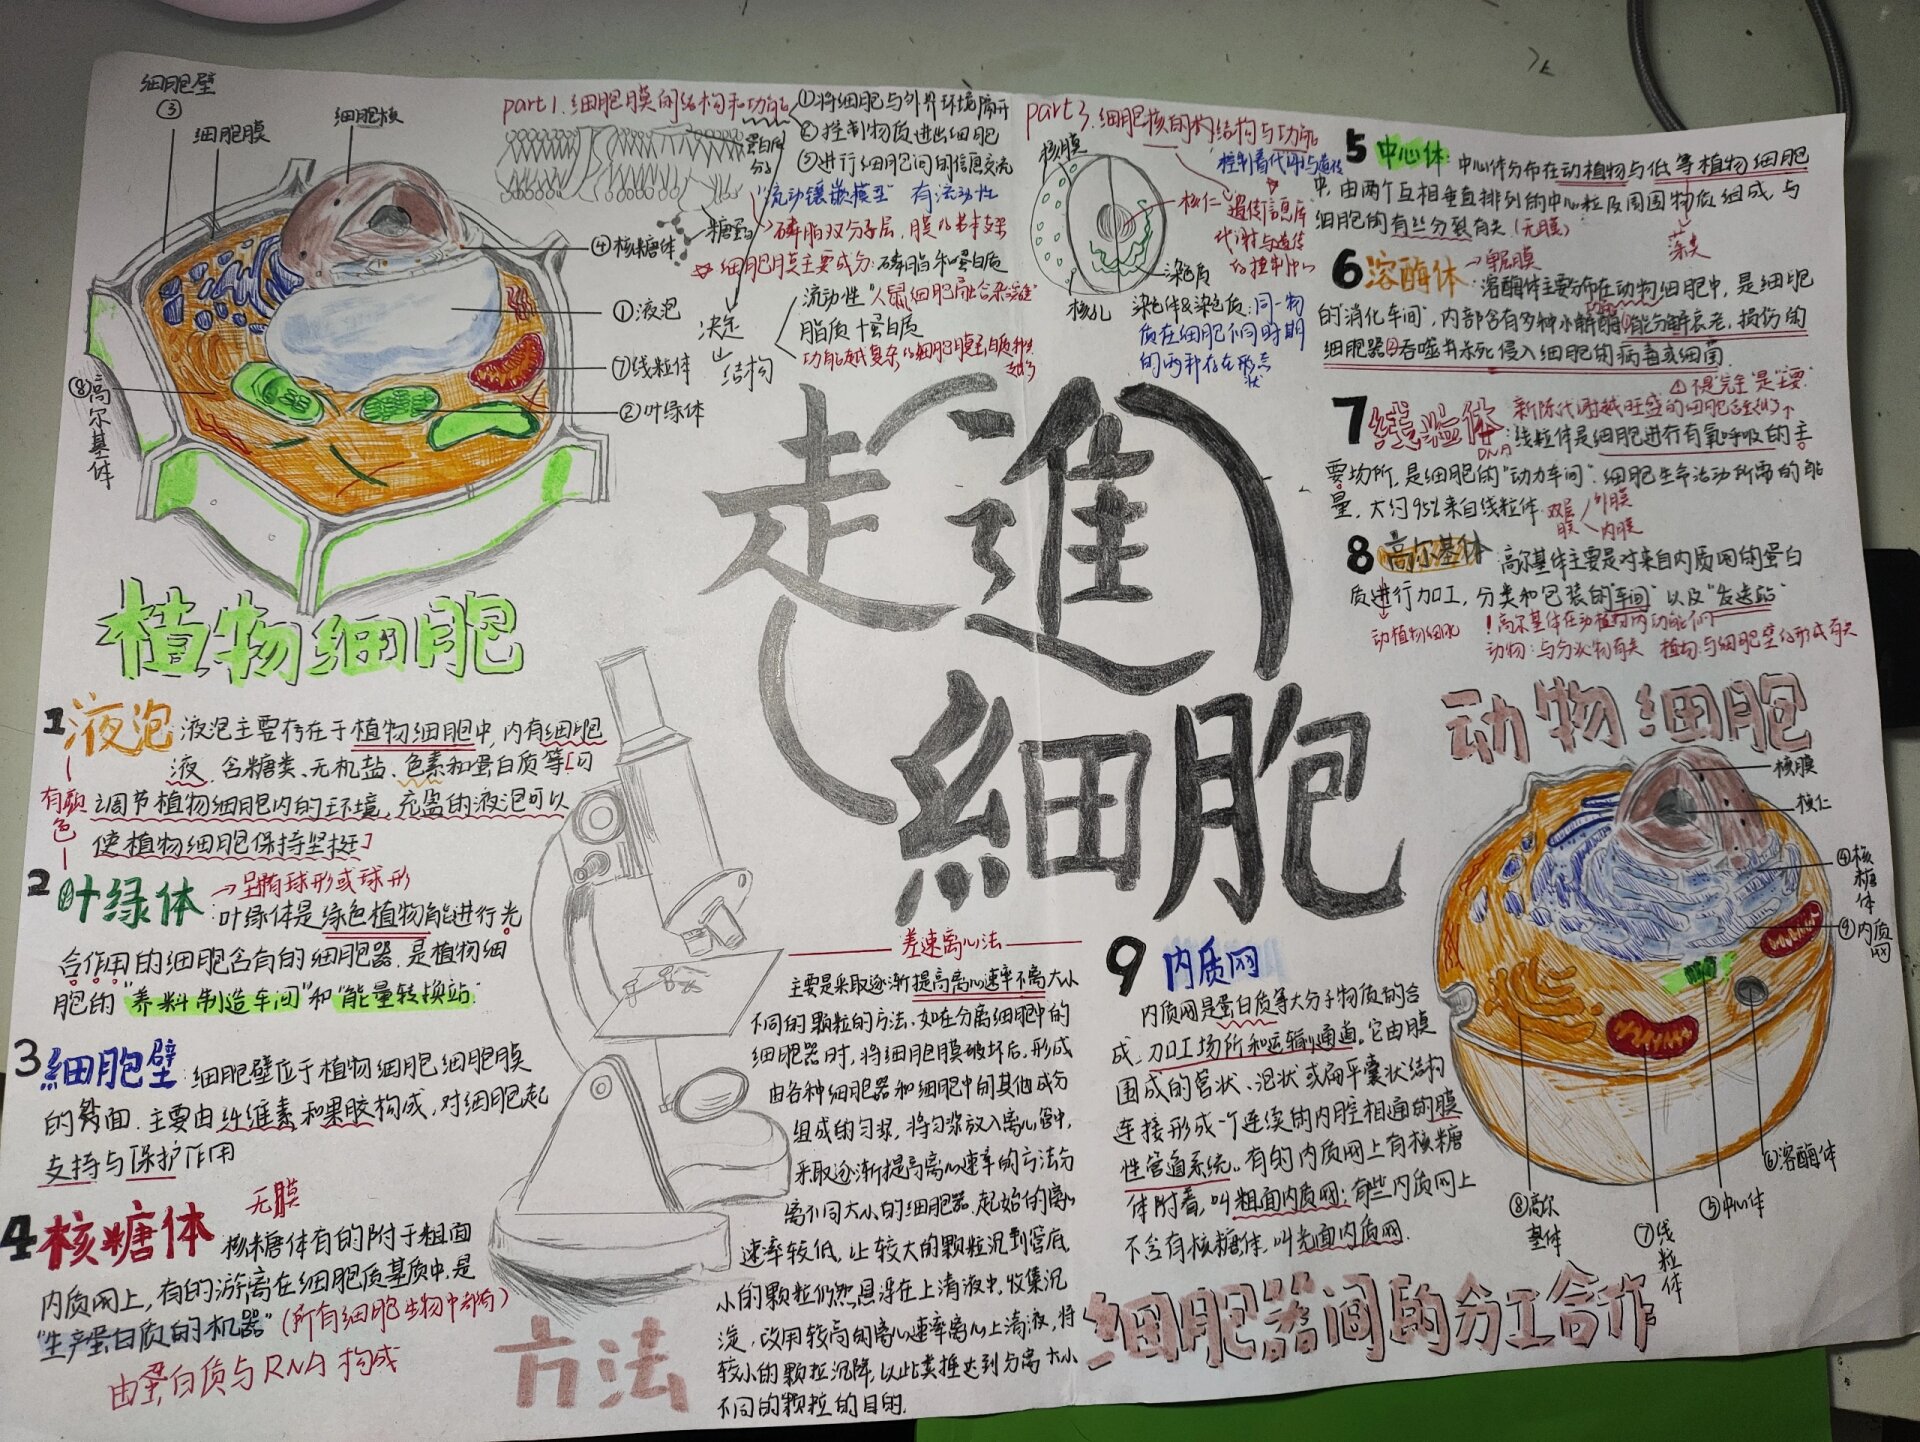 细胞壁
③
细胞膜
细胞核
④核糖体
①液泡
⑦线粒体
②叶绿体
⑧高尔基体
植物细胞
part1.细胞膜的结构和功能
①将细胞与外界环境隔开
②控制物质进出细胞
③进行细胞间的信息交流
蛋白质分子
糖蛋白
"流动镶嵌模型" 有流动性
磷脂双分子层,膜
细胞膜主要成分:磷脂和蛋白质
决定
结构
流动性"人鼠细胞融合
脂质+蛋白质
part3.细胞核的结构与功能
核膜
核仁
染色质
核孔
控制着代谢与遗传
遗传信息库
代谢与遗传
的控制中心
染色体&染色质:同一物
质在细胞不同时期
的两种存在形态
状
走進
細胞
1 液泡:液泡主要存在于植物细胞中,内有细胞
液,含糖类、无机盐、色素和蛋白质等[可
有颜色
调节植物细胞内的环境,充盈的液泡可以
使植物细胞保持坚挺]
2 叶绿体 →呈椭球形或球形
叶绿体是绿色植物能进行光
合作用的细胞含有的细胞器.是植物细
胞的"养料制造车间"和"能量转换站"
3 細胞壁:细胞壁位于植物细胞细胞膜
的 面.主要由纤维素和果胶构成,对细胞起
支持与保护作用
4 核糖体 无膜
核糖体有的附于粗面
内质网上,有的游离在细胞质基质中.是
"生产蛋白质的机器"(所有细胞生物中都有)
由蛋白质与RNA构成
方法
差速离心法
主要是采取逐渐提高离心速率 离大小
不同的颗粒的方法.如在分离细胞中的
细胞器时,将细胞膜破坏后,形成
由各种细胞器和细胞中的其他成分
组成的匀浆,将匀浆放入离心管中,
采取逐渐提高离心速率的方法分
离不同大小的细胞器.起始的离心
速率较低,让较大的颗粒沉到管底,
小的颗粒仍然悬浮在上清液中,收集沉
淀,改用较高的离心速率离心上清液,将
较小的颗粒沉降,以此类推达到分离大小
不同的颗粒的目的.
5 中心体:中心体分布在动植物与低等植物细胞
中,由两个互相垂直排列的中心粒及周围物质组成,与
细胞的有丝分裂有关(无膜)
藻类
6 溶酶体→单层膜
溶酶体主要分布在动物细胞中,是细胞
的"消化车间",内部含有多种水解酶①能分解衰老,损伤的
细胞器②吞噬并杀死侵入细胞的病毒或细菌.
7 线粒体 新陈代谢越旺盛的细胞
⚠不是"完全"是"主要"
DNA
线粒体是细胞进行有氧呼吸的主
要场所,是细胞的"动力车间".细胞生命活动所需的能
量,大约95%来自线粒体.双层膜
外膜
内膜
8 高尔基体 高尔基体主要是对来自内质网的蛋白
质进行加工,分类和包装的"车间"以及"发送站"
动植物细胞
!高尔基体在动植物
动物:与分泌物有关 植物:与细胞壁的形成有关
动物细胞
核膜
核仁
④核糖体
⑨内质网
⑥溶酶体
⑤中心体
⑦线粒体
⑧高尔基体
9 内质网
内质网是蛋白质等大分子物质的合
成,加工场所和运输通道.它由膜
围成的管状、泡状或扁平囊状结构
连接形成一个连续的内腔相通的膜
性管道系统.有的内质网上有核糖
体附着,叫粗面内质网;有些内质网上
不含有核糖体,叫光面内质网.
细胞器间的分工合作